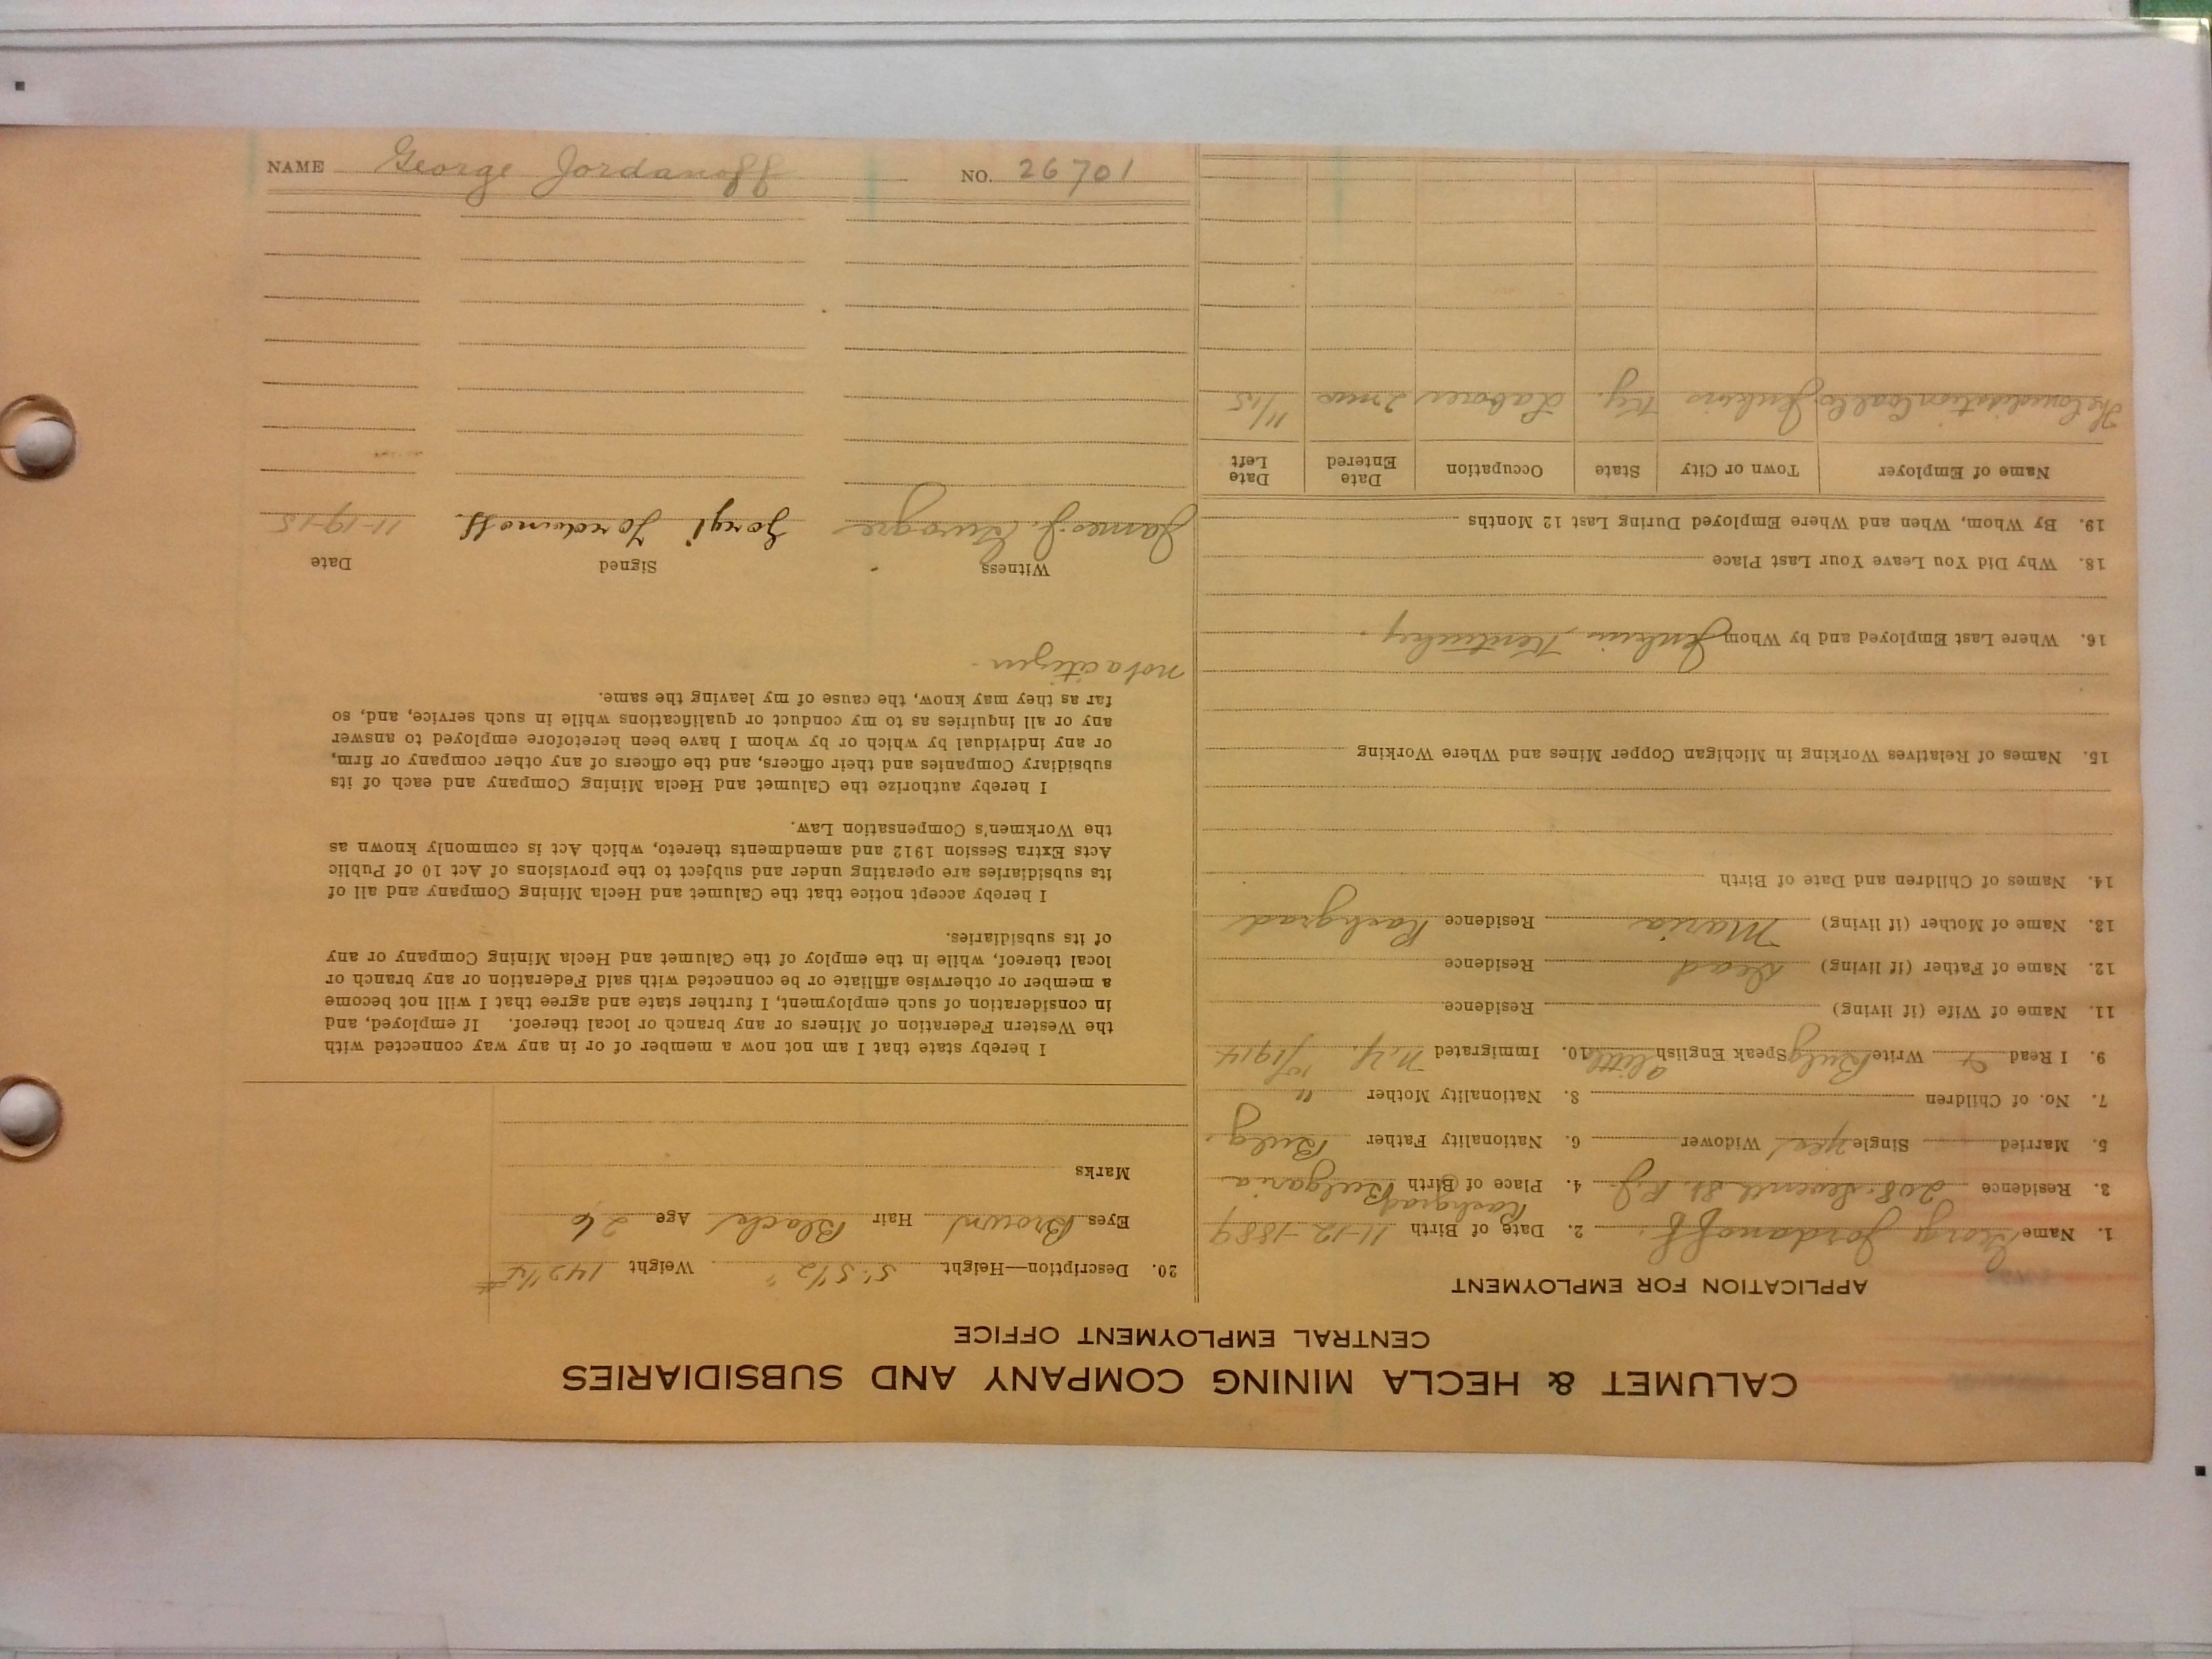 NAME George Jordanoff NO. 26701
CALUMET & HECLA MINING COMPANY AND SUBSIDIARIES
CENTRAL EMPLOYMENT OFFICE
APPLICATION FOR EMPLOYMENT
1. Name Georg Jordanoff. 2. Date of Birth 11-12-1889
Rasgrad
3. Residence 208. Seventh St. R.J. 4. Place of Birth Bulgaria
5. Married Single Yes Widower 6. Nationality Father Bulg.
7. No. of Children 8. Nationality Mother "
9. I Read & Write Bulg Speak English a little 10. Immigrated N.Y. 10/1914
11. Name of Wife (if living) Residence
12. Name of Father (if living) Dead Residence
13. Name of Mother (if living) Maria Residence Rasgrad
14. Names of Children and Date of Birth
15. Names of Relatives Working in Michigan Copper Mines and Where Working
16. Where Last Employed and by Whom Jenkins Kentucky.
18. Why Did You Leave Your Last Place
19. By Whom, When and Where Employed During Last 12 Months
Name of Employer Town or City State Occupation Date Entered Date Left
The Consolidation Coal Co. Jenkins Ky. Laborer 2 mos 11/15
20. Description—Height 5' 5 1/2" Weight 142 1/4 #
Eyes Brown Hair Black Age 26
Marks
I hereby state that I am not now a member of or in any way connected with
the Western Federation of Miners or any branch or local thereof. If employed, and
in consideration of such employment, I further state and agree that I will not become
a member or otherwise affiliate or be connected with said Federation or any branch or
local thereof, while in the employ of the Calumet and Hecla Mining Company or any
of its subsidiaries.
I hereby accept notice that the Calumet and Hecla Mining Company and all of
its subsidiaries are operating under and subject to the provisions of Act 10 of Public
Acts Extra Session 1912 and amendments thereto, which Act is commonly known as
the Workmen's Compensation Law.
I hereby authorize the Calumet and Hecla Mining Company and each of its
subsidiary Companies and their officers, and the officers of any other company or firm,
or any individual by which or by whom I have been heretofore employed to answer
any or all inquiries as to my conduct or qualifications while in such service, and, so
far as they may know, the cause of my leaving the same.
not a citizen -
Witness Signed Date
James J. Jordanoff 11-19-15